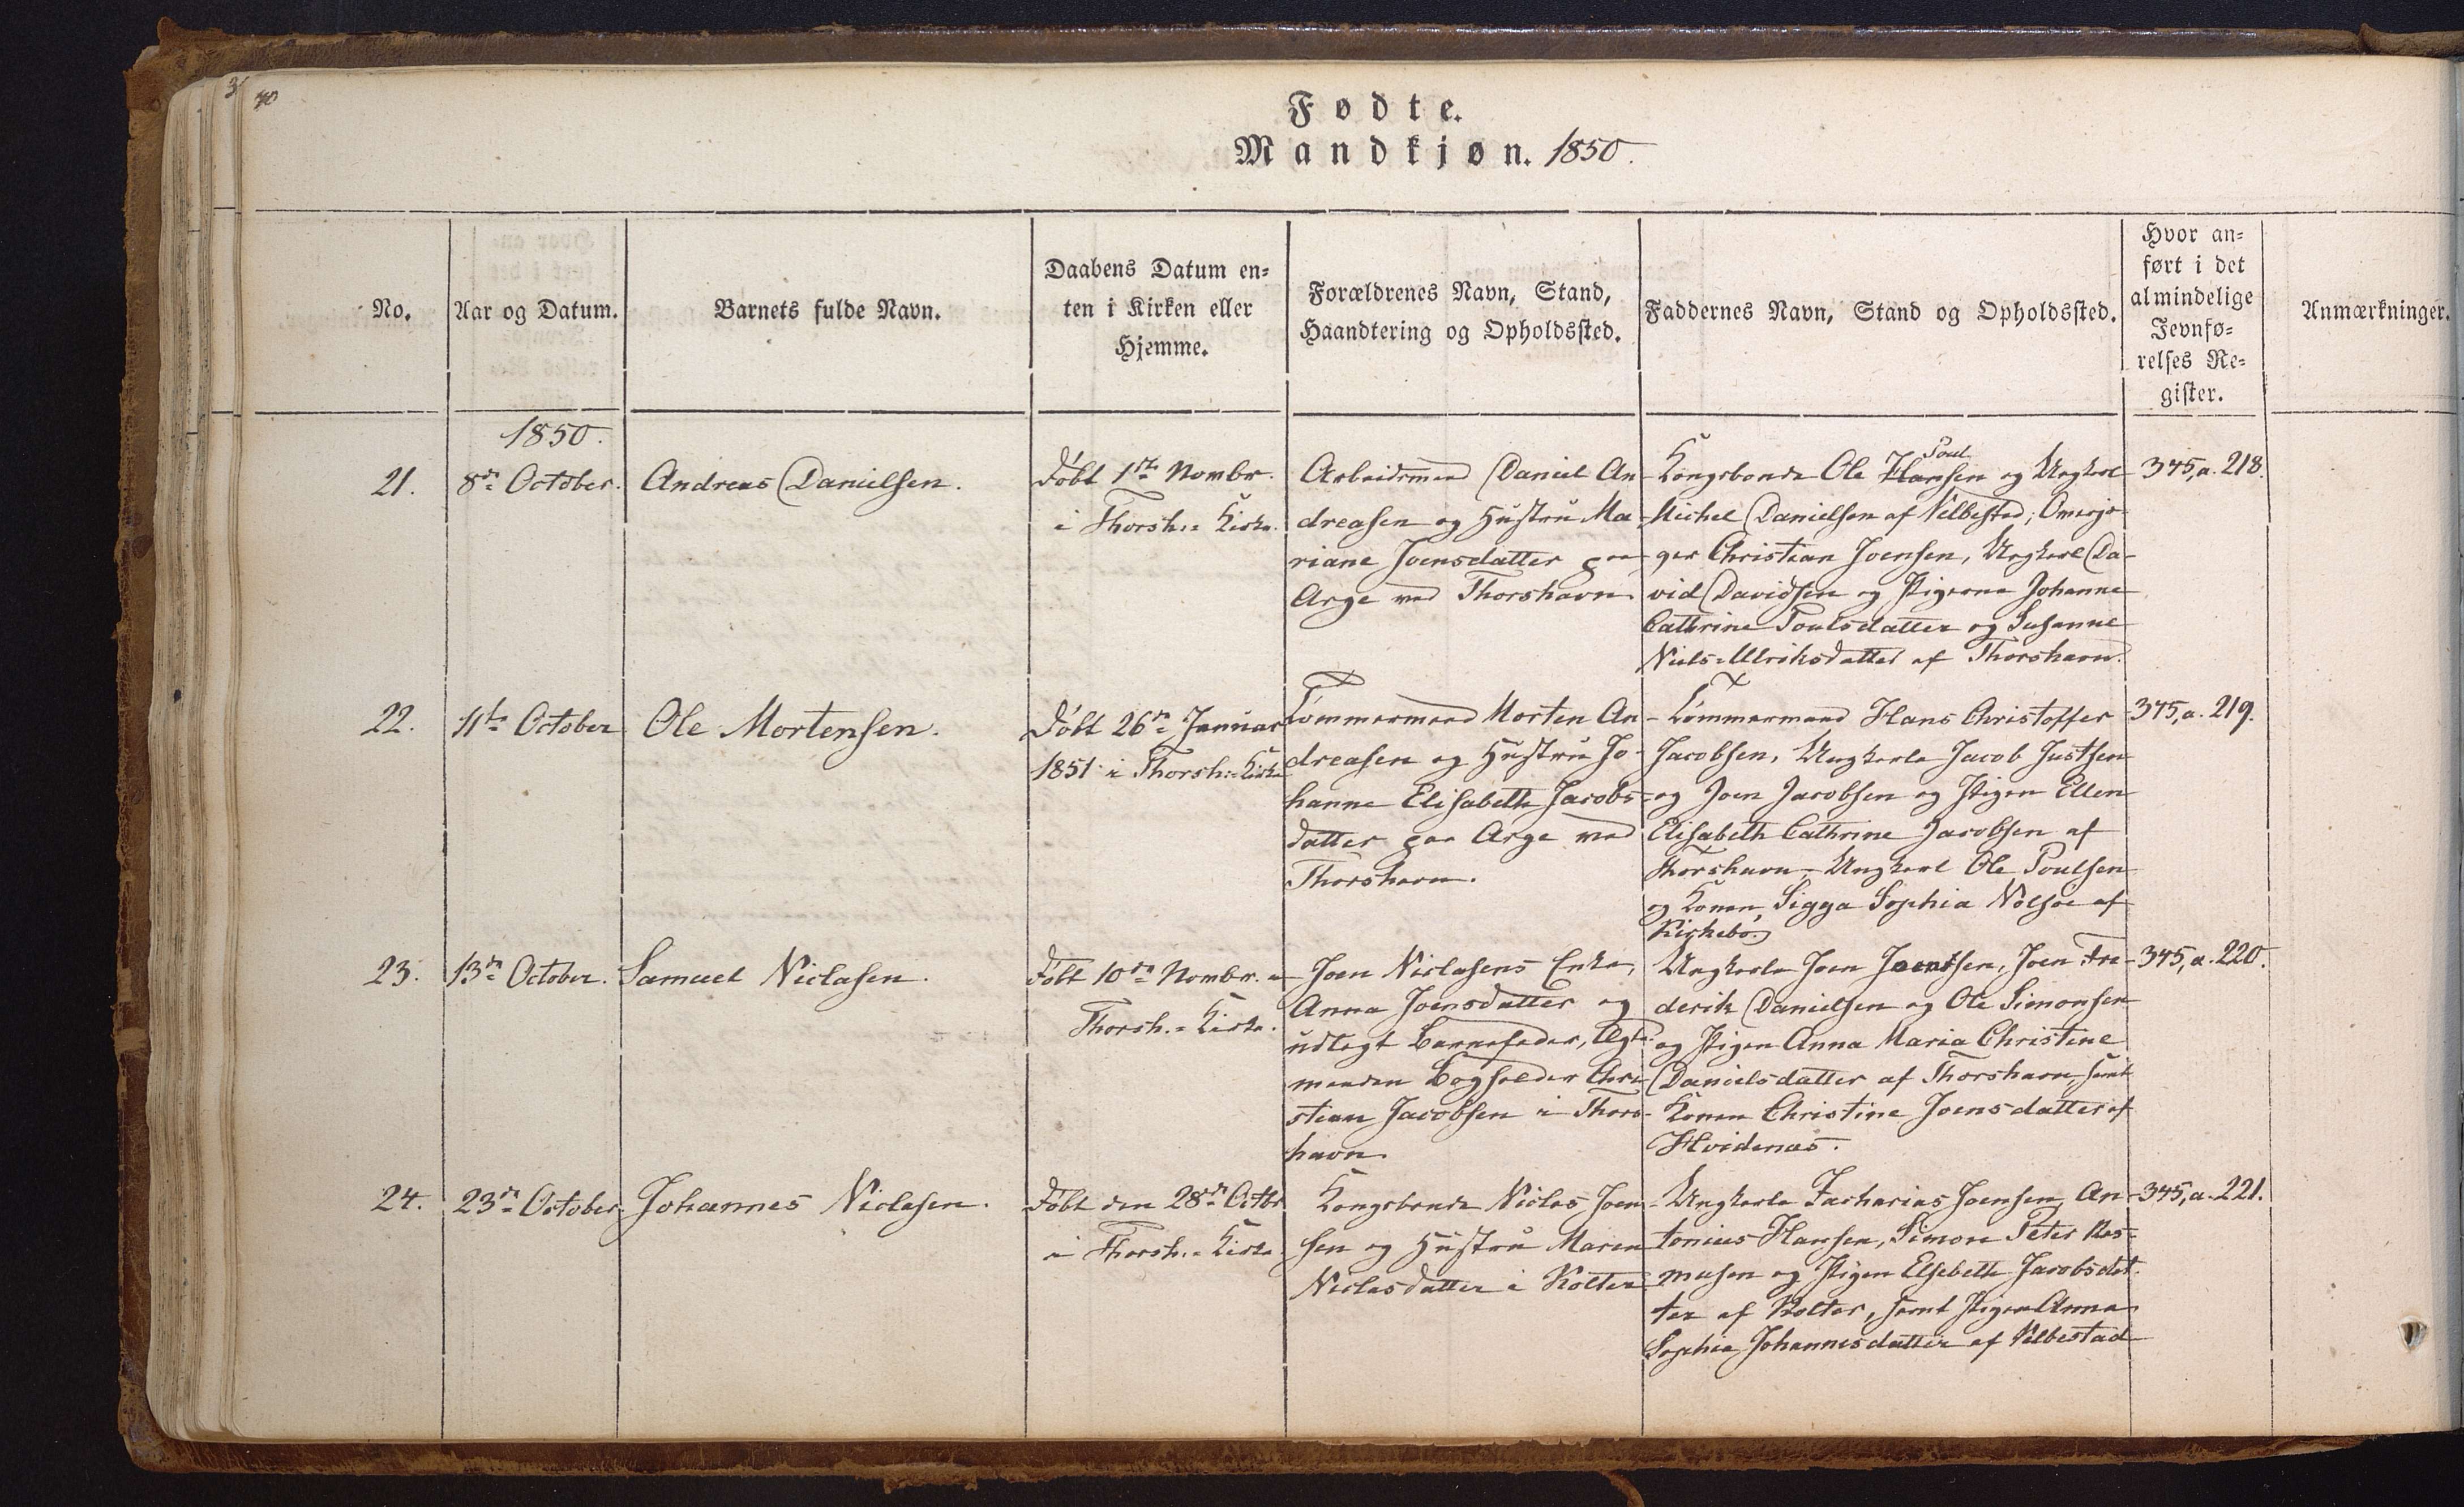 40
Fødte.
Mandkjøn. 1850.
No.
Aar og Datum.
Barnets fulde Navn.
Daabens Datum en-
ten i Kirken eller
Hjemme.
Forældrenes Navn, Stand,
Haandtering og Opholdssted.
Faddernes Navn, Stand og Opholdssted.
Hvor an-
ført i det
almindelige
Jevnfø-
relses Re-
gister.
Anmærkninger.
1850.
21.
8de October.
Andreas Danielsen.
Døbt 1ste Novmbr.
i Thorsh:= Kirke.
Arbeidsmand Daniel An
dreasen og Hustru Ma
riane Joensdatter paa
Arge ved Thorshavn.
Kongsbonde Ole Hansen og Ungkarl
Poul
Michel Danielsen af Velbestad; Omejo-
ger Christian Joensen, Ungkarl Da-
vid Davidsen og Pigerne Johanne
Cathrine Poulsdatter og Susanne
Niels=Ulriksdatter af Thorshavn.
345,a.218.
22.
11te October
Ole Mortensen.
Døbt 26de Januar
1851 i Thorsh:=Kirke
Tømmermand Morten An
dreasen og Hustru Jo-
hanne Elisabeth Jacobs-
datter paa Arge ved
Thorshavn.
Tømmermand Hans Christoffer
Jacobsen, Ungkarle Jacob Justsen
og Joen Jacobsen og Pigen Ellen
Elisabeth Cathrine Jacobsen af
Thorshavn, Ungkarl Ole Poulsen
og Konen Sigga Sophia Nolsøe af
Kirkebø.
345,a.219.
23.
13de October.
Samuel Niclasen.
Døbt 10de Novmbr. i
Thorsh.= Kirke.
Joen Niclasens Enke,
Anna Joensdatter og
udlagt Barnefader, Ægte
manden Bogholder Chri
stian Jacobsen i Thors-
havn.
Ungkarle Joen Joensen, Joen Fre-
derik Danielsen og Ole Simonsen
og Pigen Anna Maria Christine
Danielsdatter af Thorshavn, samt
Konen Christine Joensdatter af
Hvidenæs.
345,a.220.
24.
23de October
Johannes Niclasen.
Døbt den 28de Octbr
i Thorsh.= Kirke
Kongsbonde Niclas Joen-
sen og Hustru Maren
Niclasdatter i Kolter
Ungkarle Zacharias Joensen, An-
tonius Hansen, Simon Peter Ras-
musen og Pigen Elsebeth Jacobsdat
ter af Kolter, samt Pigen Anna
Sophia Johannesdatter af Velbestad
345,a.221.